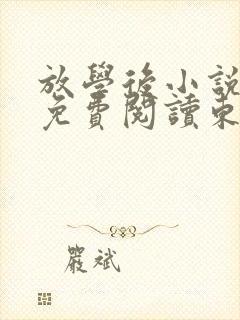 放學後小說
免費閱讀東
嚴斌